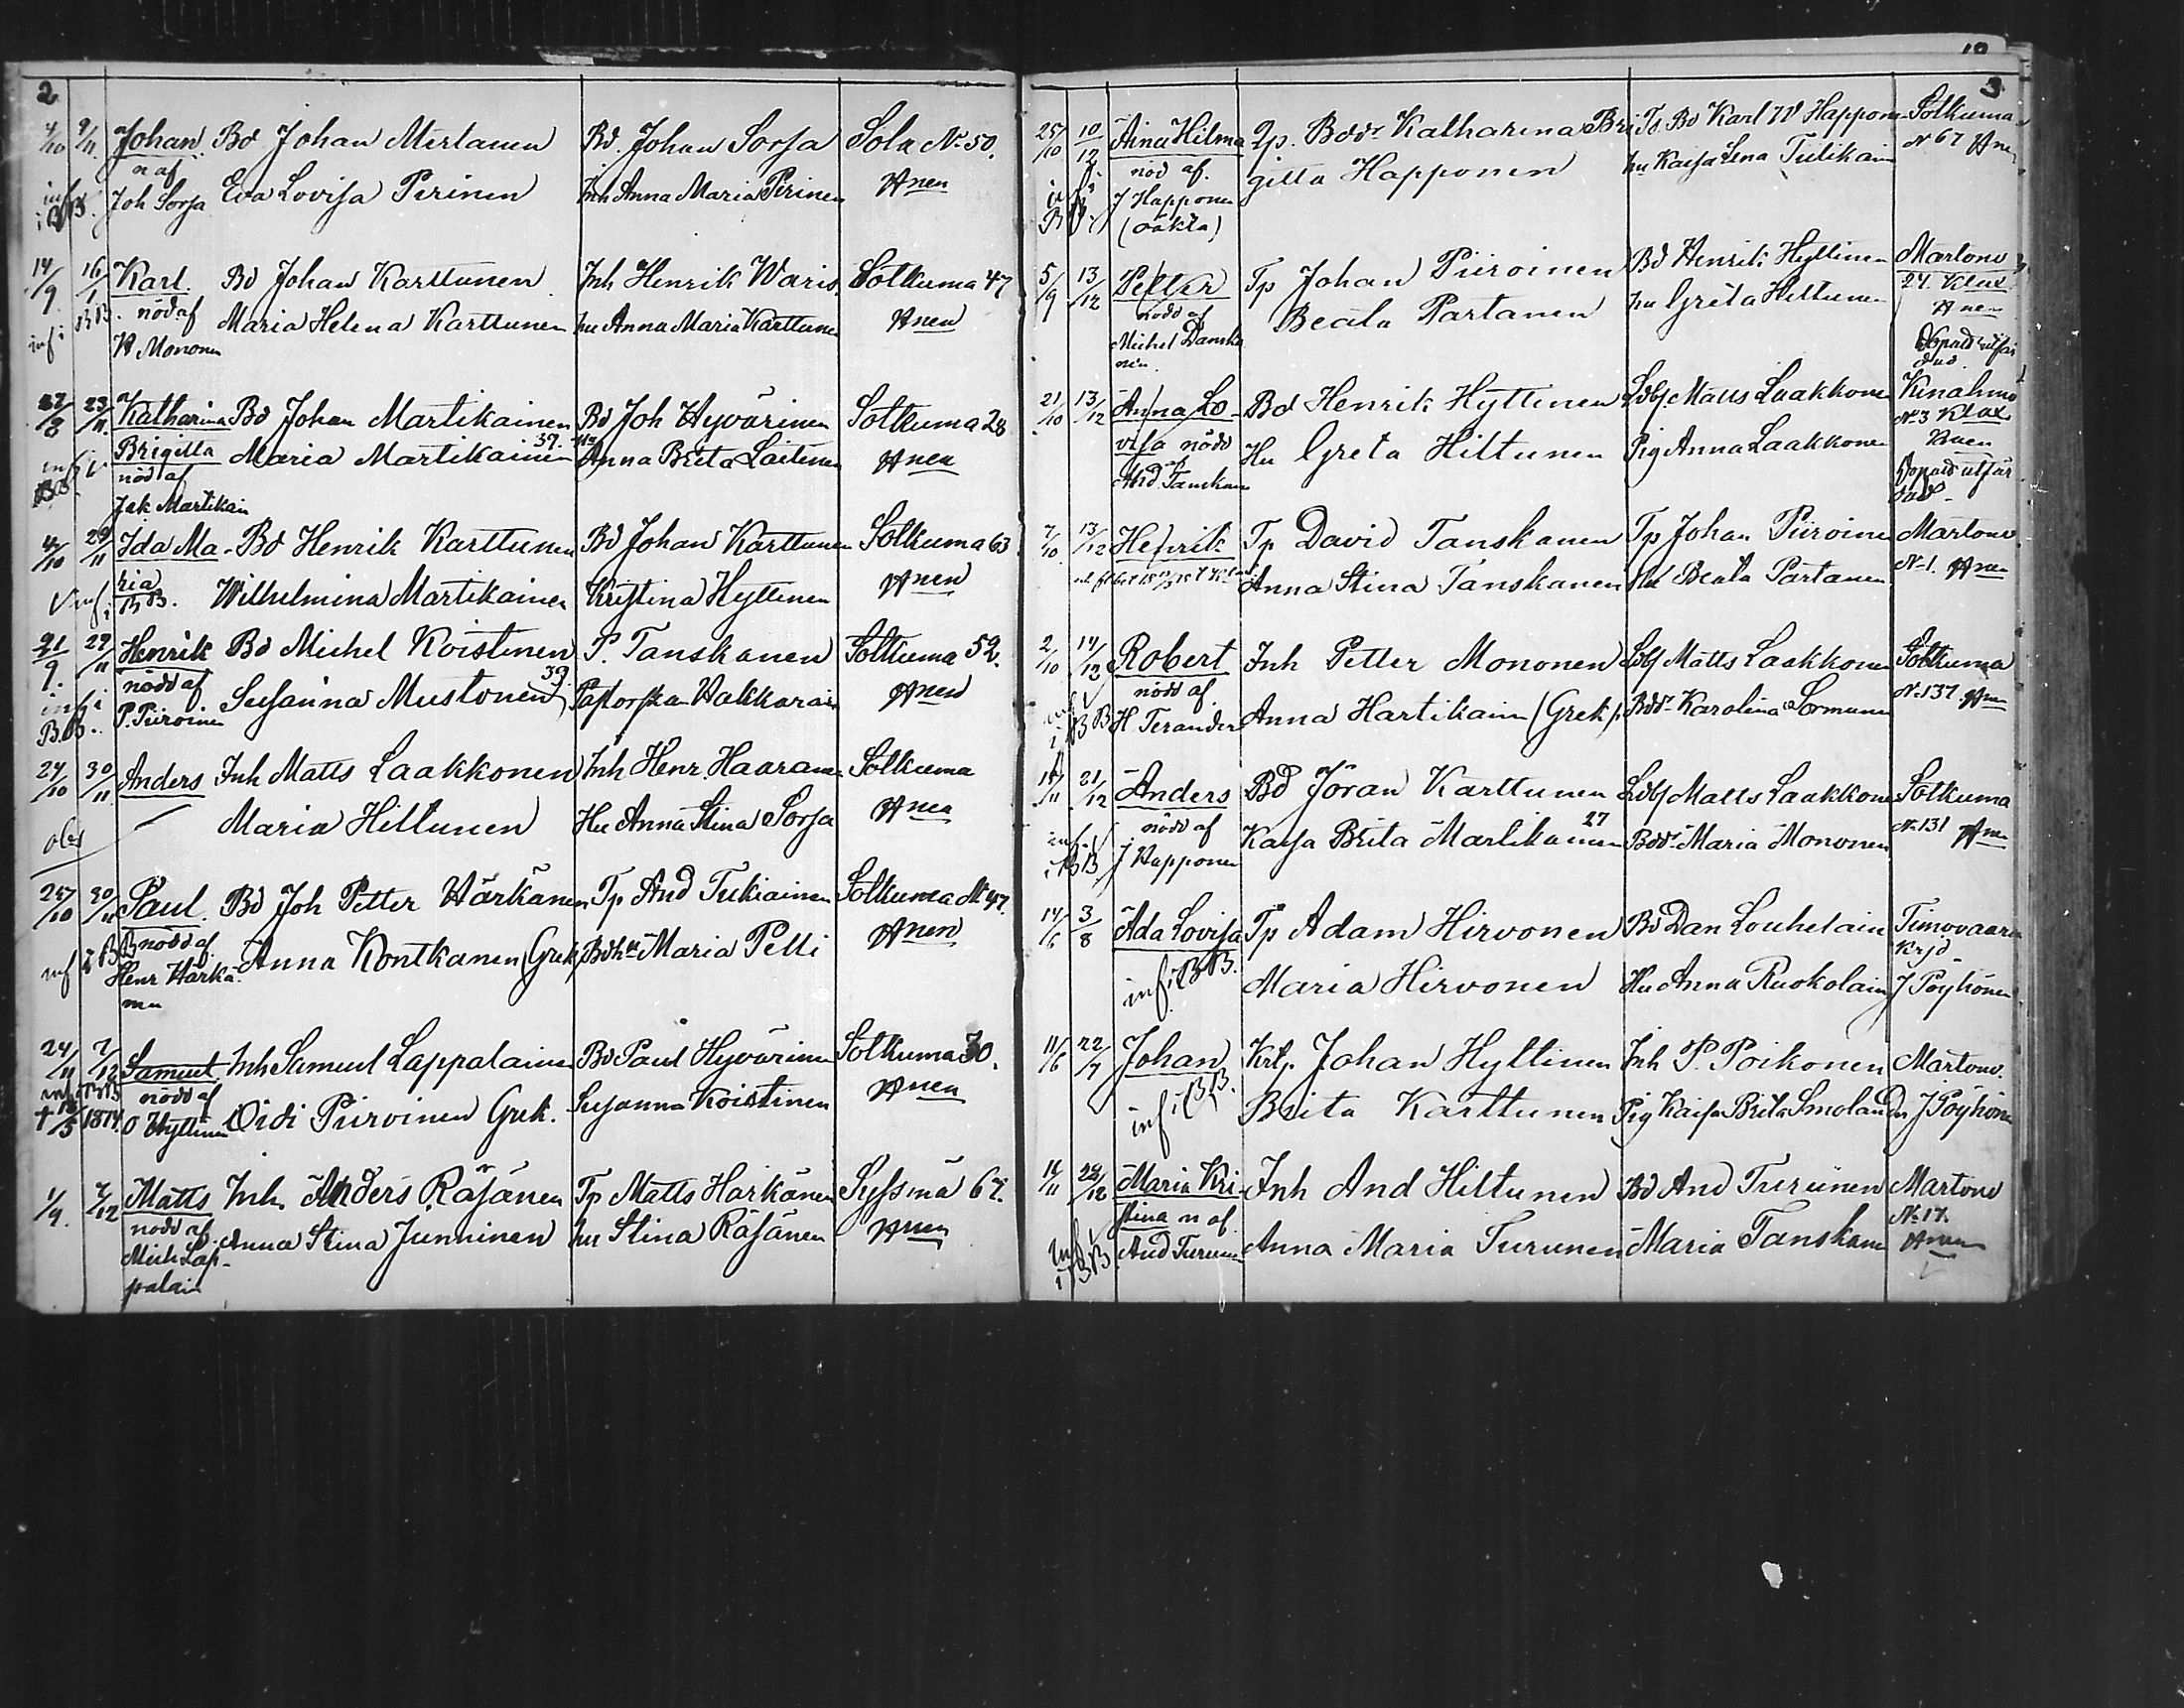 2
4/10 9/11 Johan Bd Johan Mertanen Bd. Johan Sorsa Sola No 50.
n af
inf i BB. Joh Sorsa Eva Lovisa Pirinen Inh Anna Maria Pirinen Anen
14/9 16/1 Karl. Bd Johan Karttunen Inh Henrik Waris. Sotkuma 47
inf i BB. nöd af Maria Helena Karttunen hu Anna Maria Karttunen Anen
A Mononen
23/11 Katharina Bd Johan Martikainen Bd Joh Hyvärinen Sotkuma 28
Brigitta Maria Martikainen 37. Hu Anna Brita Laitinen Anen
nöd af
Jak Martikain
4/10 29/11 Ida Ma- Bd Henrik Karttunen Bd Johan Karttunen Sotkuma 63
inf i ria BB. Wilhelmina Martikainen Kristina Hyttinen Anen
21/9. 29/11 Henrik Bd Michel Koistinen P. Tanskanen Sotkuma 52.
inf i nödd af Susanna Mustonen 39. Pastorskan Hakkarain Anen
BB. P. Piiroinen
24/10 30/11 Anders Inh Matts Laakkonen Inh Henr. Haaranen Sotkuma
obs Maria Hiltunen Hu Anna Stina Sorsa Anen
25/10 30/11 Paul. Bd Joh Petter Härkänen Tp And Tukiainen Sotkuma No 47.
inf i BB nödd af Anna Kontkanen (Grek) Maria Pelli Anen
Henr Härkä-
nen
24/11 7/12 Samuel Inh Samuel Lappalainen Bd Paul Hyvärinen Sotkuma 30.
inf i BB nödd af
† /5 1874. O Hyttinen Oidi Piiroinen Grek. Susanna Koistinen Anen
1/9. 7/12 Matts Inh. Anders Räsänen Tp Matts Härkänen Syssmä 67.
nödd af Anna Stina Junninen hu Stina Räsänen Anen
Mich Lap-
palain
3
25/10 10/12 Aina Hilma Katharina Bri Bd Karl Happonen Sotkuma
nöd af. gitta Happonen hu Kaisa Lena Tulikain No 67 Anen
J Happonen
(oäkta)
5/9 13/12 Petter Tp Johan Piiroinen Bd Henrik Hyttinen Martono
nödd af Beata Partanen hu Greta Hiltunen 24. Klax
Michel Danska Anen
nen.
21/10 13/12 Anna Lo- Bd Henrik Hyttinen Ldbf. Matts Laakkonen Kinahmo
visa nödd Hu Greta Hiltunen Pig Anna Laakkonen No 3 Klax
af Anen
And. Tanskanen utfär
dad
7/10. 13/12 Henrik Tp David Tanskanen Tp Johan Piiroinen Martono
Anna Stina Tanskanen Hu Beata Partanen No 1. Anen
2/10 14/12 Robert Inh Petter Mononen Ldbf Matts Laakkonen Sotkuma
nödd af
inf i BB H Terander Anna Hartikain (Grek). Bddr Karolina Sormunen No 137 Anen
/11 21/12 Anders Bd Jöran Karttunen Ldbf Matts Laakkonen Sotkuma
nödd af Kaisa Brita Martikainen 27 Bddr Maria Mononen No 131 Anen
inf. i BB. J Happonen
14/6 3/8 Ada Lovisa Tp Adam Hirvonen Bd Dan Louhelain Timovaara
Krjd
inf i BB. Maria Hirvonen Hu Anna Ruokolain J Pöyhönen
11/6 22/7 Johan Krtp. Johan Hyttinen Inh P. Poikonen Martono.
inf i BB. Brita Karttunen Pig Kaisa Brita Smoland J Pöyhönen
/11 29/12 Maria Kri- Inh And Hiltunen Bd And Turunen Martono
stina n af. No 17.
inf i BB. And Turunen Anna Maria Turunen Maria Tanskanen Anen